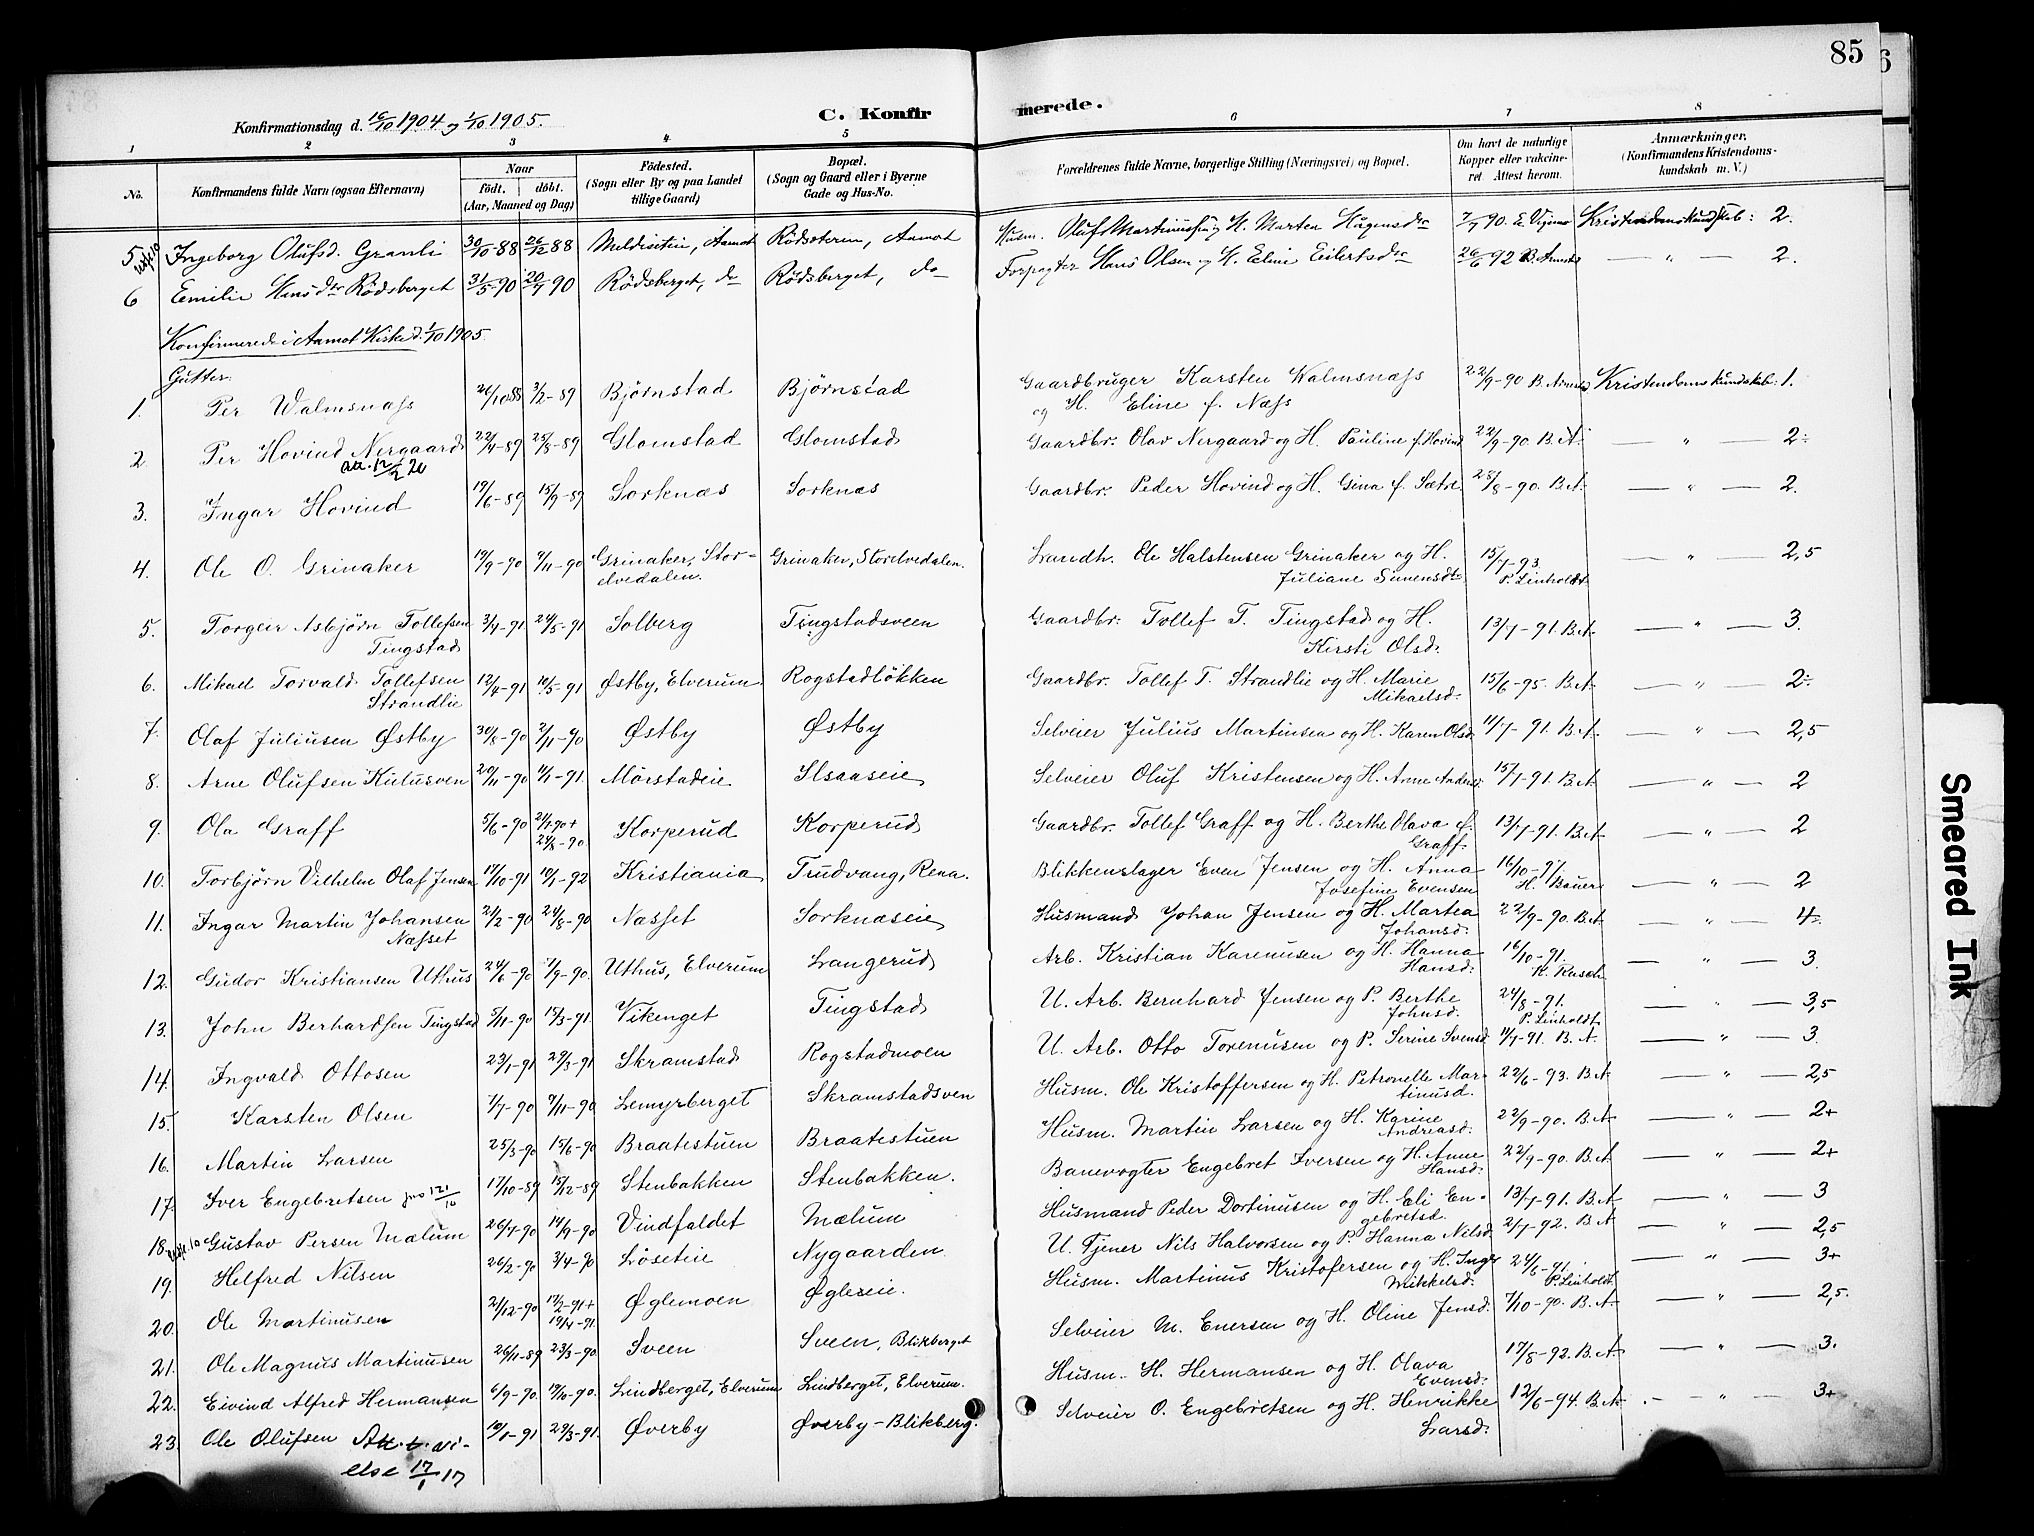 85
Konfirmationsdag d. 16/10 1904 og 1/10 1905.
C. Konfirmerede.
1 2 3 4 5 6 7 8
No.
Konfirmandens fulde Navn (ogsaa Efternavn)
Naar
født. døbt.
(Aar, Maaned og Dag)
Födested.
(Sogn eller By og paa Landet
tillige Gaard)
Bopæl.
(Sogn og Gaard eller i Byerne
Gade og Hus-No.
Forældrenes fulde Navne, borgerlige Stilling (Næringsvei) og Bopæl.
Om havt de naturlige
Kopper eller vaccine-
ret Attest herom.
Anmærkninger.
(Konfirmandens Kristendoms-
kundskab m. V.)
5 Ingeborg Olufsd. Granli 30/10-88 26/12 88 Meldiseten, Aamot Rödsteren, Aamot Husm. Oluf Martiniussen og H. Marten Hågensdr 7/7 90. Kristendomskundskab: 2.
6 Emilie Hansdr Rödsberget 31/5-90 20/7 90 Rödsberget, do Rödsberget, do Forpagter Hans Olsen og H. Elmi Eilertsdr 26/6 92 B. Arnts — " — 2.
Konfirmerede i Aamot Kirke d. 1/10 1905.
Gutter.
1. Per Walmsnæss 26/10-88 3/2-89 Björnstad Björnstad Gaardbruger Karsten Walmsnæss 22/9-90 B. Arnts Kristendomskundskab: 1.
og H. Eline f. Næss
2 Per Hovind Nergaard 22/4-89 25/8-89 Glomstad Glomstad Gaardbr. Olav Nergaard og H. Pauline f. Hovind 22/9-90 B. A. — " — 2÷
att. 12/2 20
3. Ingar Hovind 19/6-89 15/9-89 Sorknæs Sorknæs Gaardbr. Peder Hovind og H. Gina f. Sætre 25/8-90. B. A. — " — 2.
4. Ole O. Grinaker 19/9-90 9/11-90 Grinaker, Stor- Grinaker, Storelvedalen. Landh. Ole Halstensen Grinaker og H. 15/7-93. — " — 2,5
elvedalen. Juliane Simensdr P. Linholdt
5. Torgeir Asbjörn Tollefsen 3/4-91 24/5-91 Solberg Tingstadsveen Gaardbr. Tollef T. Tingstad og H. 13/7-91. B. A. — " — 3.
Tingstad Kirsti Olsd.
6. Mikael Torvald Tollefsen 12/4-91 10/5-91 Østby, Elverum. Rogstadløkken Gaardbr. Tollef T. Strandlie og H. Marie 15/6-95. B. A. — " — 2÷
Strandlie Mikaelsd.
7. Olaf Juliusen Østby 30/8-90 2/11-90 Østby Østby Selveier Julius Martinsen og H. Karen Olsd. 11/7-91. B. A. — " — 2,5
8. Arne Olufsen Kulusven 20/11-90 11/1-91. Mörstadeie Ilsaaseie Selveier Oluf Kristensen og H. Anne Andersd. 15/7-91. B. A. — " — 2
9. Ola Graff 5/6-90 2/7-90 + Korperud Korperud Gaardbr. Tollef Graff og H. Berthe Olava f. 13/7-91. B. A. — " — 2
24/8-90. Graff.
10. Torbjörn Vilhelm Olaf Jensen 17/10-91 10/1-92 Kristiania Trudvang, Rena. Blikkenslager Even Jensen og H. Anna 16/10-91 — " — 2
Josefine Evensen H. Bauer
11. Ingar Martin Johansen 21/2-90 24/8-90 Næsset Sorknæseie Husmand Johan Jensen og H. Martea 22/9-90. B. A. — " — 4÷
Næsset Johansd.
12. Gudor Kristiansen Uthus 24/6-90 7/9-90. Uthus, Elverum Langerud Arb. Kristian Karenusen og H. Hanna 16/10-91. — " — 3.
Hansd. K. Rusch
13. John Berhardsen Tingstad 5/11-90 15/3-91. Vikenget Tingstad U. Arb. Bernhard Jensen og P. Berthe 24/8-91. — " — 3,5
Johnsd. P. Linholdt
14. Ingvald Ottosen 23/1-91 29/3-91 Skramstad Rogstadmoen U. Arb. Otto Torenusen og P. Serine Svensd. 11/7-91. B. A — " — 3.
15. Karsten Olsen 7/7-90 9/11-90 Lemyrberget Skramstadsven Husm. Ole Kristoffersen og H. Petronelle Mar- 22/6-93. B. A — " — 2,5
tinusd.
16. Martin Larsen 25/3-90 15/6-90 Braatestuen Braatestuen Husm. Martin Larsen og H. Karine 22/9-90. B. A. — " — 2+
Andreasd.
17. Iver Engebretsen 17/10-89 15/12-89 Stenbakken Stenbakken. Banevogter Engebret Iversen og H. Anne 22/9-90. B. A. — " — 2+
Hansd.
18. Gustav Persen Mælum 26/7-90 14/9-90 Vindfaldet Mælum Husmand Peder Dortinusen og H. Eli En- 13/7-91. B. A — " — 3
gebretsd.
19. Helfred Nilsen 26/2-90 3/4-90 Löseteie Nygaarden U. Tjener Nils Halvorsen og P. Hanna Nilsd. 2/7-92. B. A — " — 2,5
20. Ole Martinusen 21/12-90 17/2-91 + Øglemoen Øgleeie. Husm. Martinus Kristofersen og H. Inger 24/6-91. — " — 3+
19/4-91. Mikkelsd. P. Linholdt
21. Ole Magnus Martinusen 26/11-89 23/3-90 Sveen Sveen, Blikberget Selveier M. Enersen og H. Oline Jensd. 7/10-90. B. A — " — 2,5.
22. Eivind Alfred Hermansen 6/9-90. 19/10-90. Lindberget, Elverum Lindberget, Elverum. Husm. H. Hermansen og H. Olava 17/8-92. B. A. — " — 3.
Evensd.
23. Ole Olufsen 10/1-91 29/3-91. Øverby Øverby - Blikberg. Selveier O. Engebretsen og H. Henrikke 12/6-94. B. A. — " — 3+
Larsd.
17/1 17
Smeared Ink